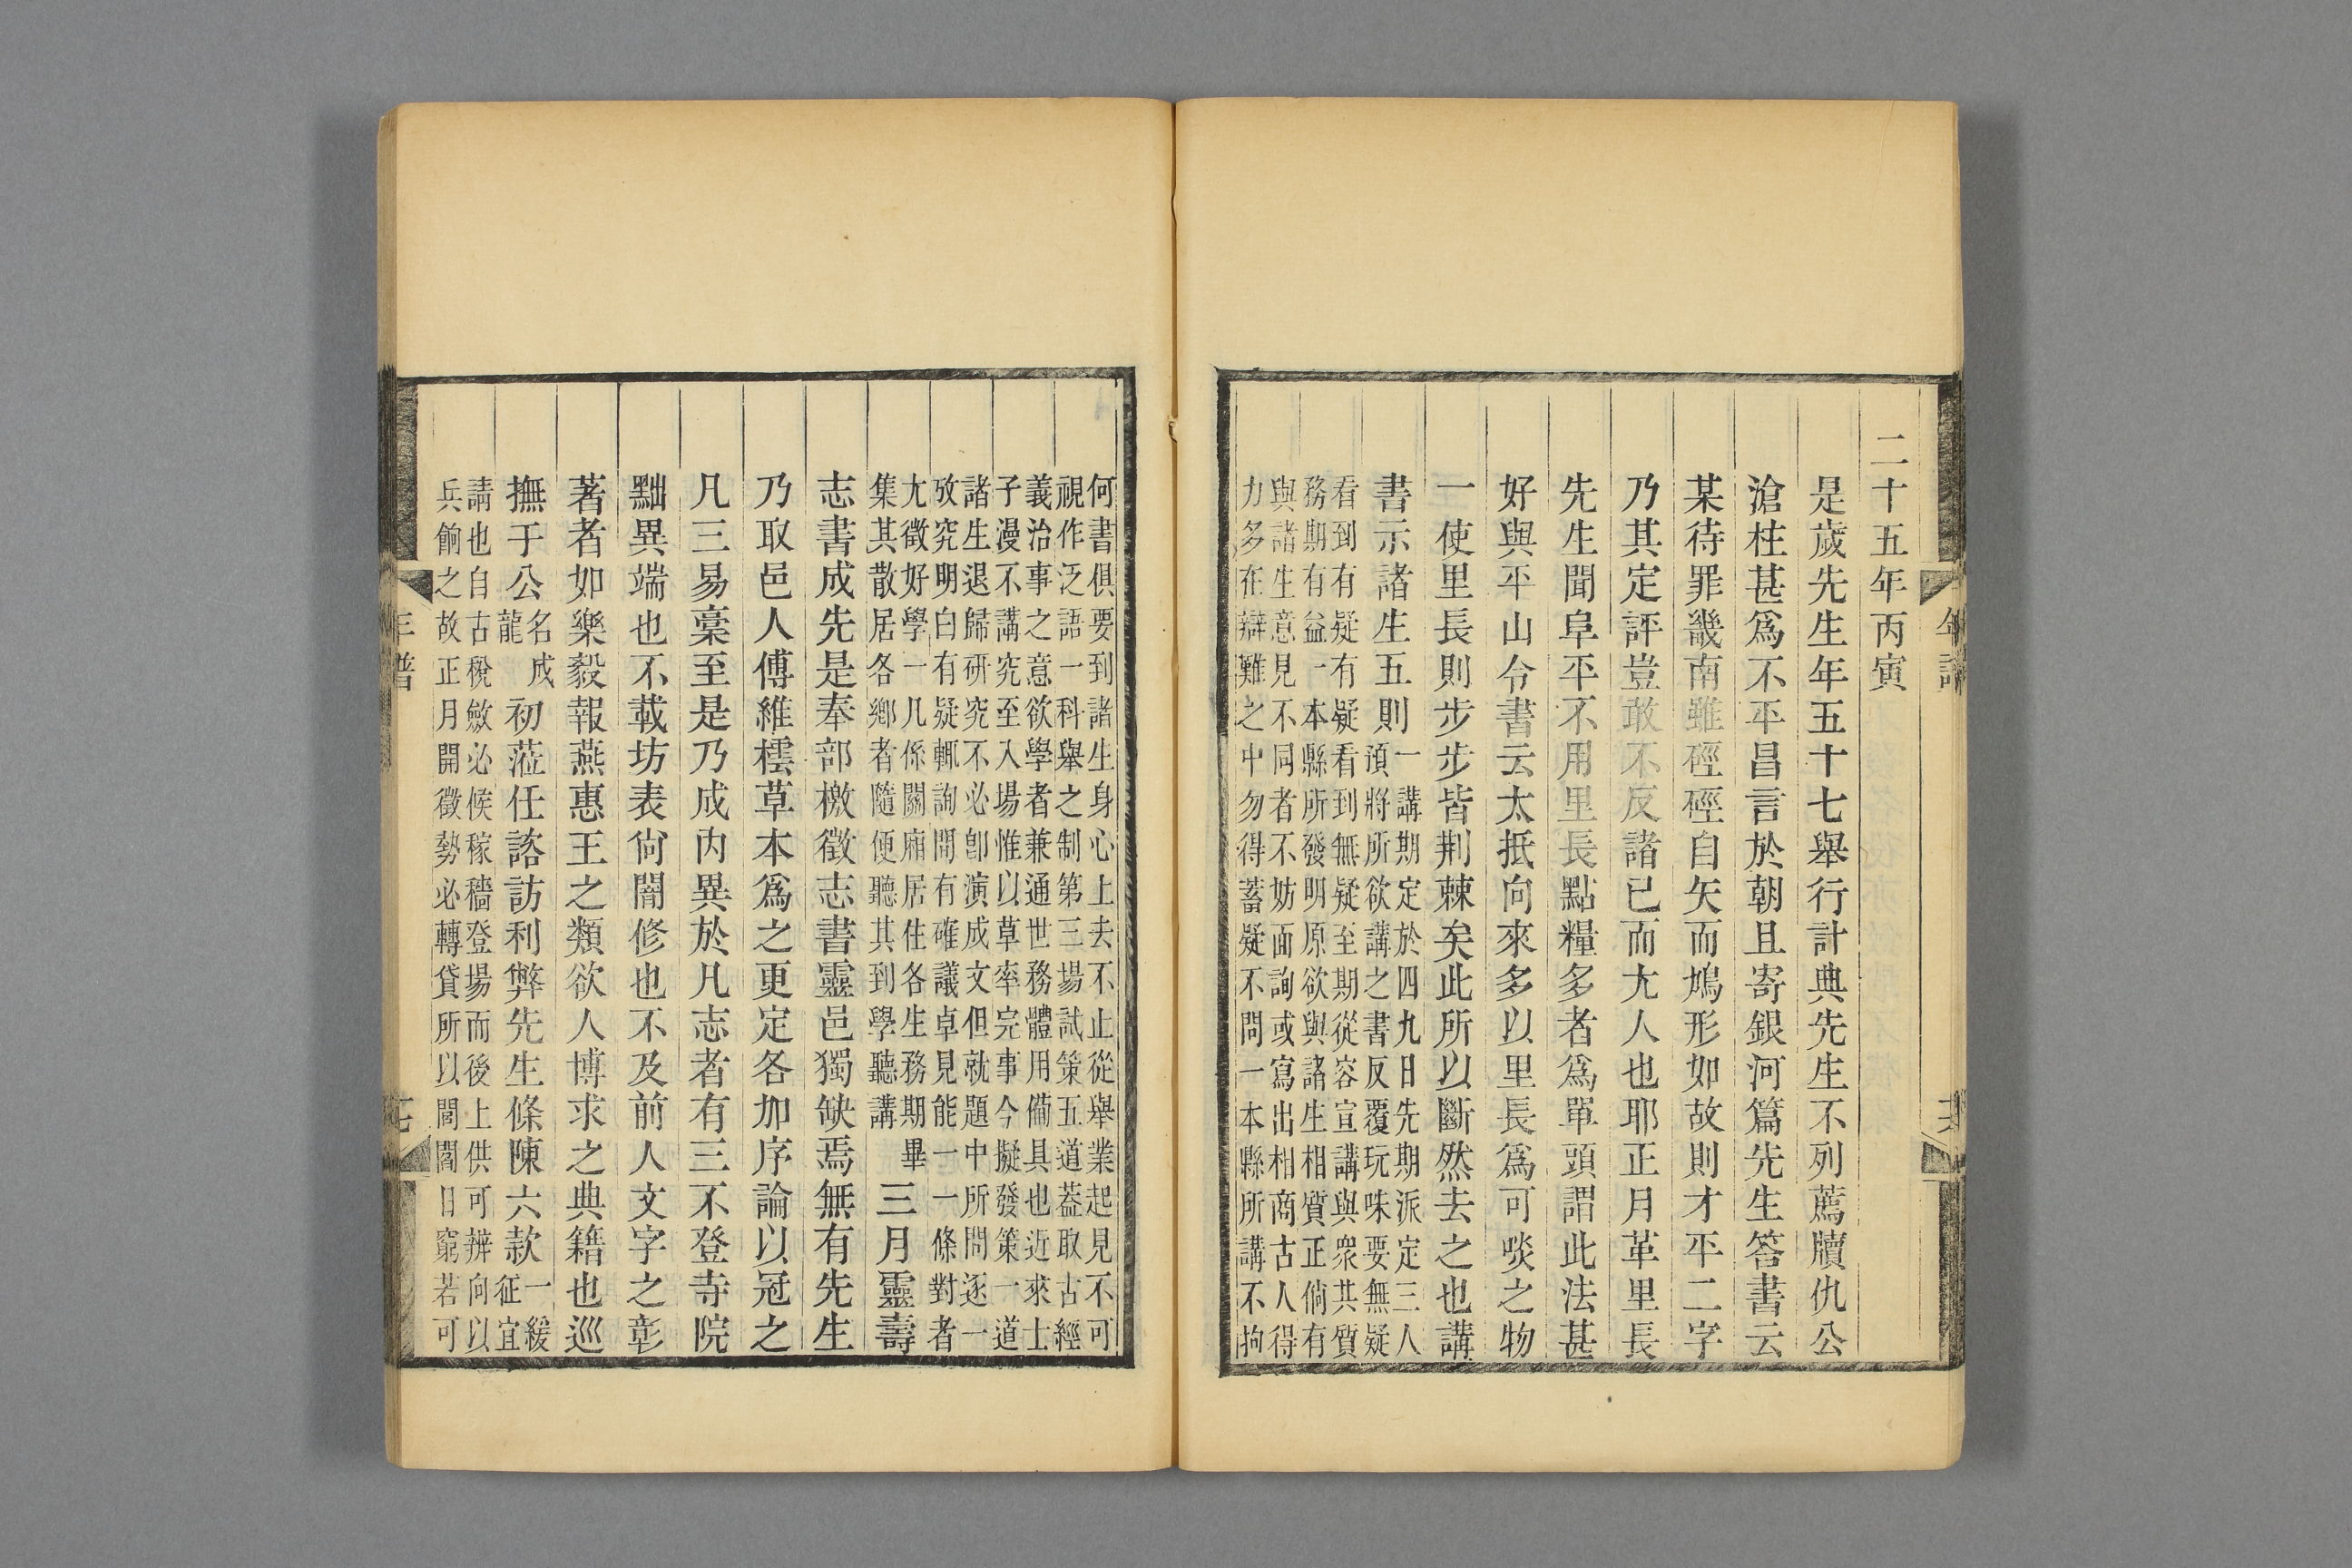 二十五年丙寅
是歲先生年五十七舉行計典先生不列薦牘仇公
滄柱甚爲不平昌言於朝且寄銀河篇先生答書云
某待罪畿南雖硜硜自矢而鳩形如故則才平二字
乃其定評豈敢不反諸已而尤人也耶正月革里長
先生聞阜平不用里長點糧多者爲單頭謂此法甚
好與平山令書云太抵向來多以里長爲可啖之物
一使里長則步步皆荆棘矣此所以斷然去之也講
書示諸生五則
一講期定於四九日先期派定三人
預將所欲講之書反覆玩味要無疑
看到有疑有疑看到無疑至期從容宣講與衆其質
務期有益一本縣所發明原欲與諸生相質正倘有
與諸生意見不同者不妨面詢或寫出相商古人得
力多在辯難之中勿得蓄疑不問一本縣所講不拘
何書俱要到諸生身心上去不止從舉業起見不可
視作泛語一科舉之制第三場試策五道葢取古經
義治事之意欲學者兼通世務體用備具也近來士
子漫不講究至入場惟以草率完事今擬發策一道
諸生退歸研究不必卽演成文但就題中所問逐一
攷究明白有疑輒詢問有確議卓見能一一條對者
尤徵好學一凡係關廂居住各生務期畢
集其散居各鄉者隨便聽其到學聽講
三月靈壽
志書成先是奉部檄徵志書靈邑獨缺焉無有先生
乃取邑人傅維橒草本爲之更定各加序論以冠之
凡三易稾至是乃成內異於凡志者有三不登寺院
黜異端也不載坊表尙闇修也不及前人文字之彰
著者如樂毅報燕惠王之類欲人博求之典籍也巡
撫于公
名成
龍
初蒞任諮訪利弊先生條陳六款
一緩
征宜
請也自古稅斂必候稼穡登場而後上供可辨向以
兵餉之故正月開徵勢必轉貸所以閭閻日窮若可
年譜